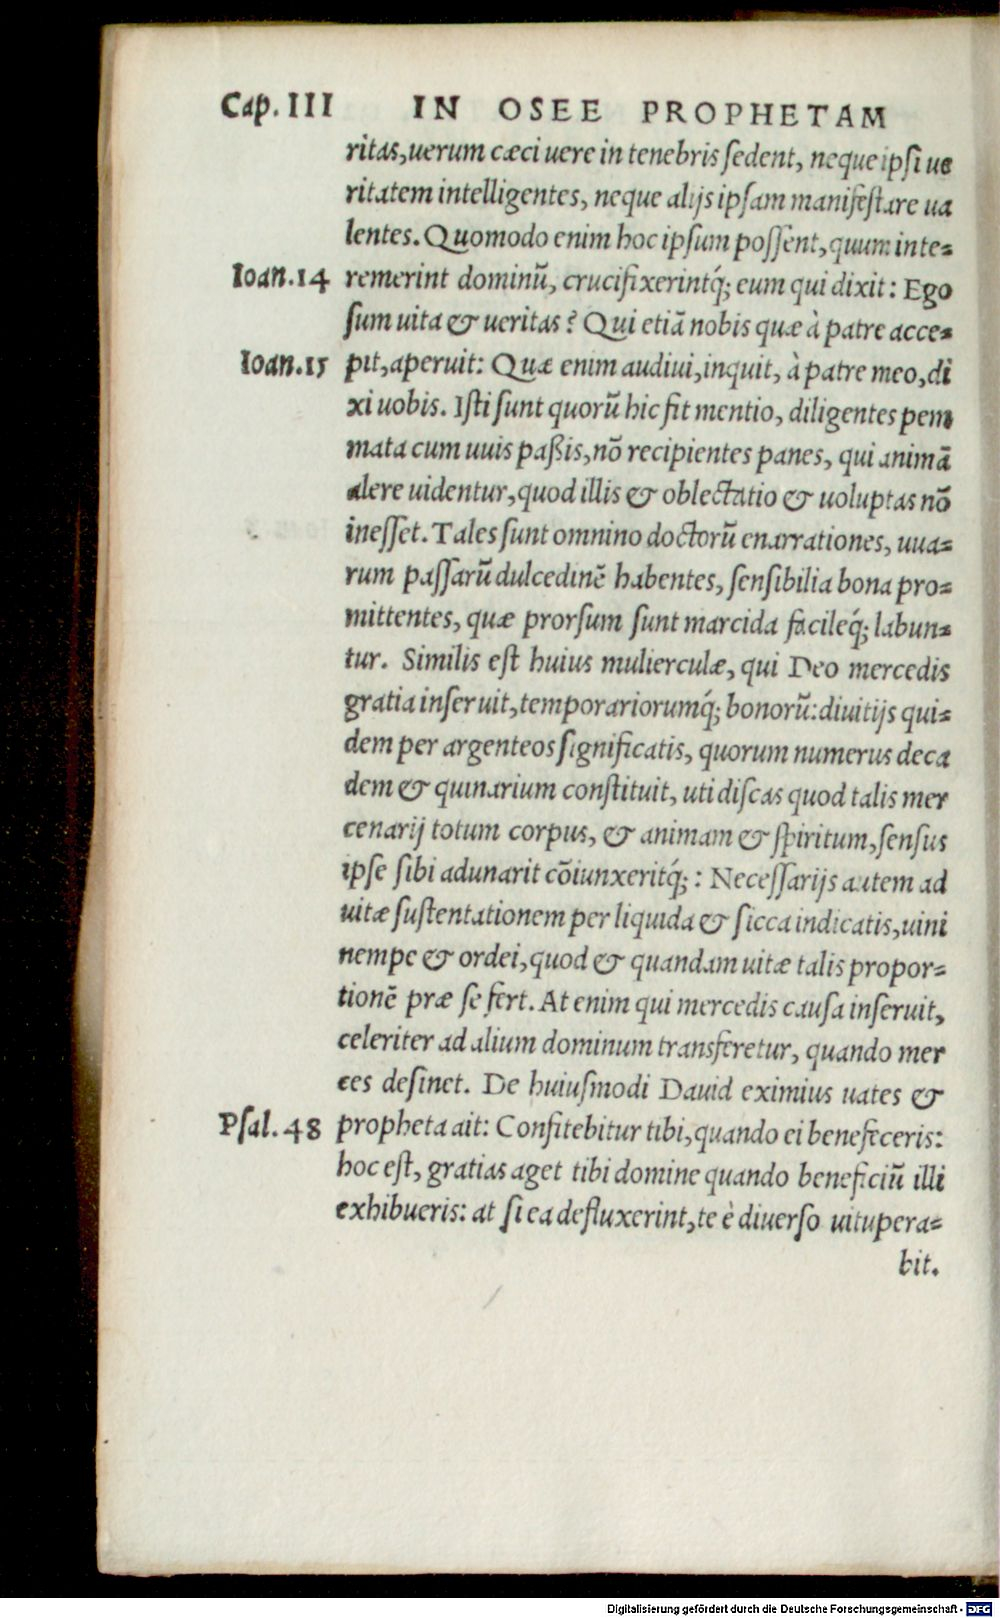 Cap. III IN OSEE PROPHETAM
ritas, uerum cæci uere in tenebris ſedent, neque ipſi ue
ritatem intelligentes, neque alijs ipſam manifeſtare ua
lentes. Quomodo enim hoc ipſum poſſent, quum inte-
Ioan.14 remerint dominũ, crucifixerintq́; eum qui dixit: Ego
ſum uita & ueritas? Qui etiã nobis quæ à patre acce-
Ioan.15 pit, aperuit: Quæ enim audiui, inquit, à patre meo, di
xi uobis. Iſti ſunt quorũ hic fit mentio, diligentes pem
mata cum uuis paßis, nõ recipientes panes, qui animã
alere uidentur, quod illis & oblectatio & uoluptas nõ
ineſſet. Tales ſunt omnino doctorũ enarrationes, uua-
rum paſſarũ dulcedinẽ habentes, ſenſibilia bona pro-
mittentes, quæ prorſum ſunt marcida facileq́; labun-
tur. Similis eſt huius mulierculæ, qui Deo mercedis
gratia inſeruit, temporariorumq́; bonorũ: diuitijs qui-
dem per argenteos ſignificatis, quorum numerus deca
dem & quinarium conſtituit, uti diſcas quod talis mer
cenarij totum corpus, & animam & ſpiritum, ſenſus
ipſe ſibi adunarit cõiunxeritq́;: Neceſſarijs autem ad
uitæ ſuſtentationem per liquida & ſicca indicatis, uini
nempe & ordei, quod & quandam uitæ talis propor-
tionẽ præ ſe fert. At enim qui mercedis cauſa inſeruit,
celeriter ad alium dominum transferetur, quando mer
ces deſinet. De huiuſmodi Dauid eximius uates &
Pſal.48 propheta ait: Confitebitur tibi, quando ei benefeceris:
hoc eſt, gratias aget tibi domine quando beneficiũ illi
exhibueris: at ſi ea defluxerint, te è diuerſo uitupera-
bit.
Digitalisierung gefördert durch die Deutsche Forschungsgemeinschaft - DFG